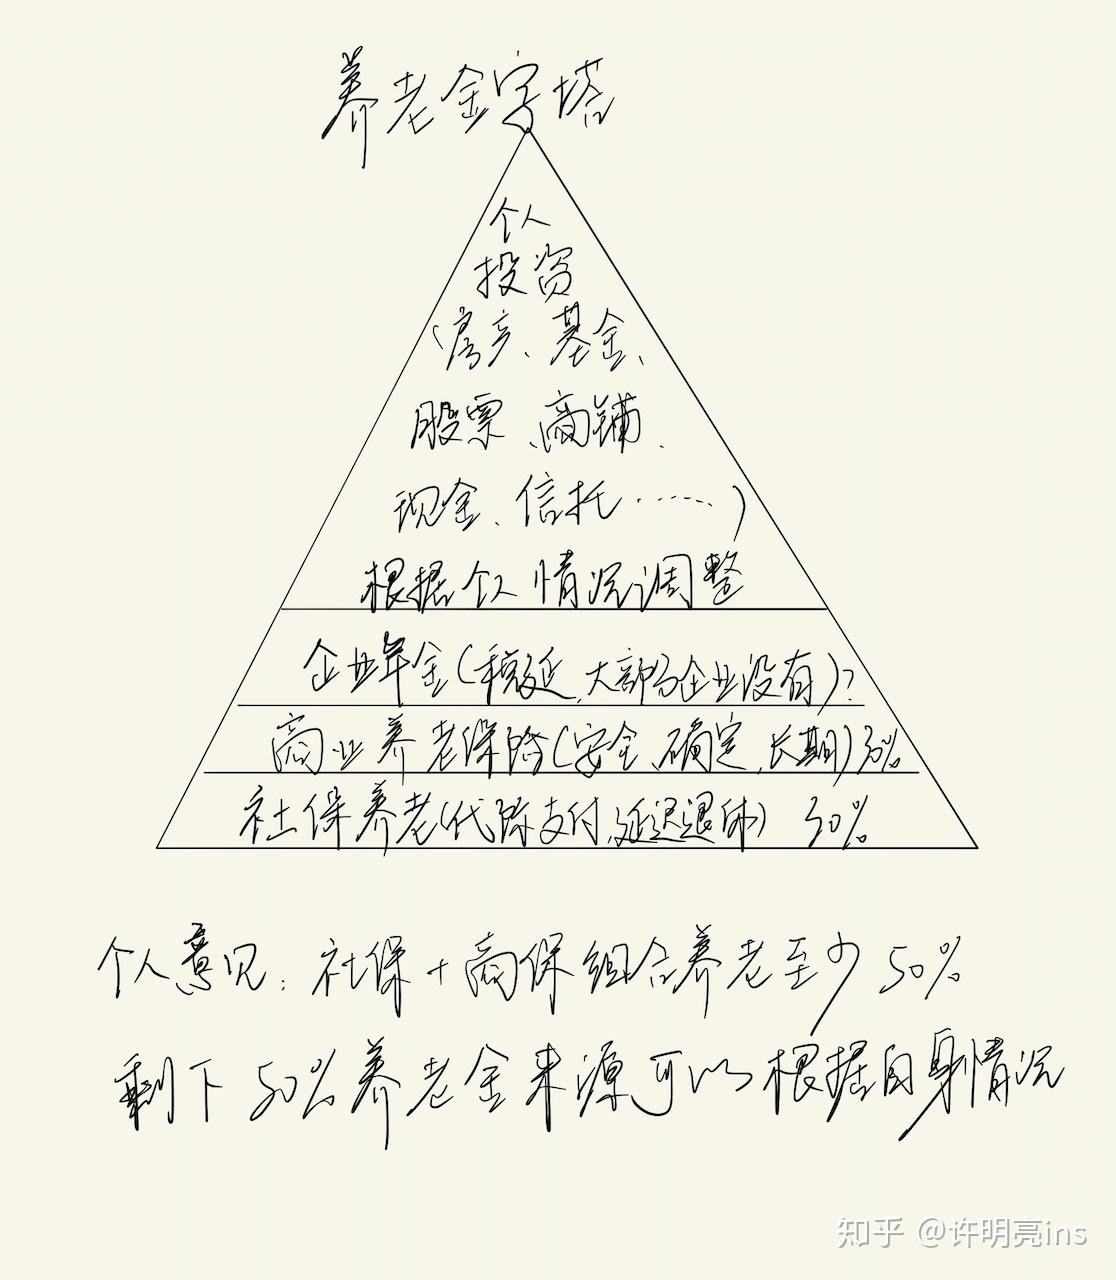 养老金字塔
个人
投资
(房产、基金、
股票、商铺、
现金、信托……)
根据个人情况调整
企业年金(税延,大部分企业没有)?
商业养老保险(安全、确定、长期)30%
社保养老(代际支付,延迟退休) 30%
个人意见:社保+商保组合养老至少50%
剩下50%养老金来源可以根据自身情况
知乎 @许明亮ins